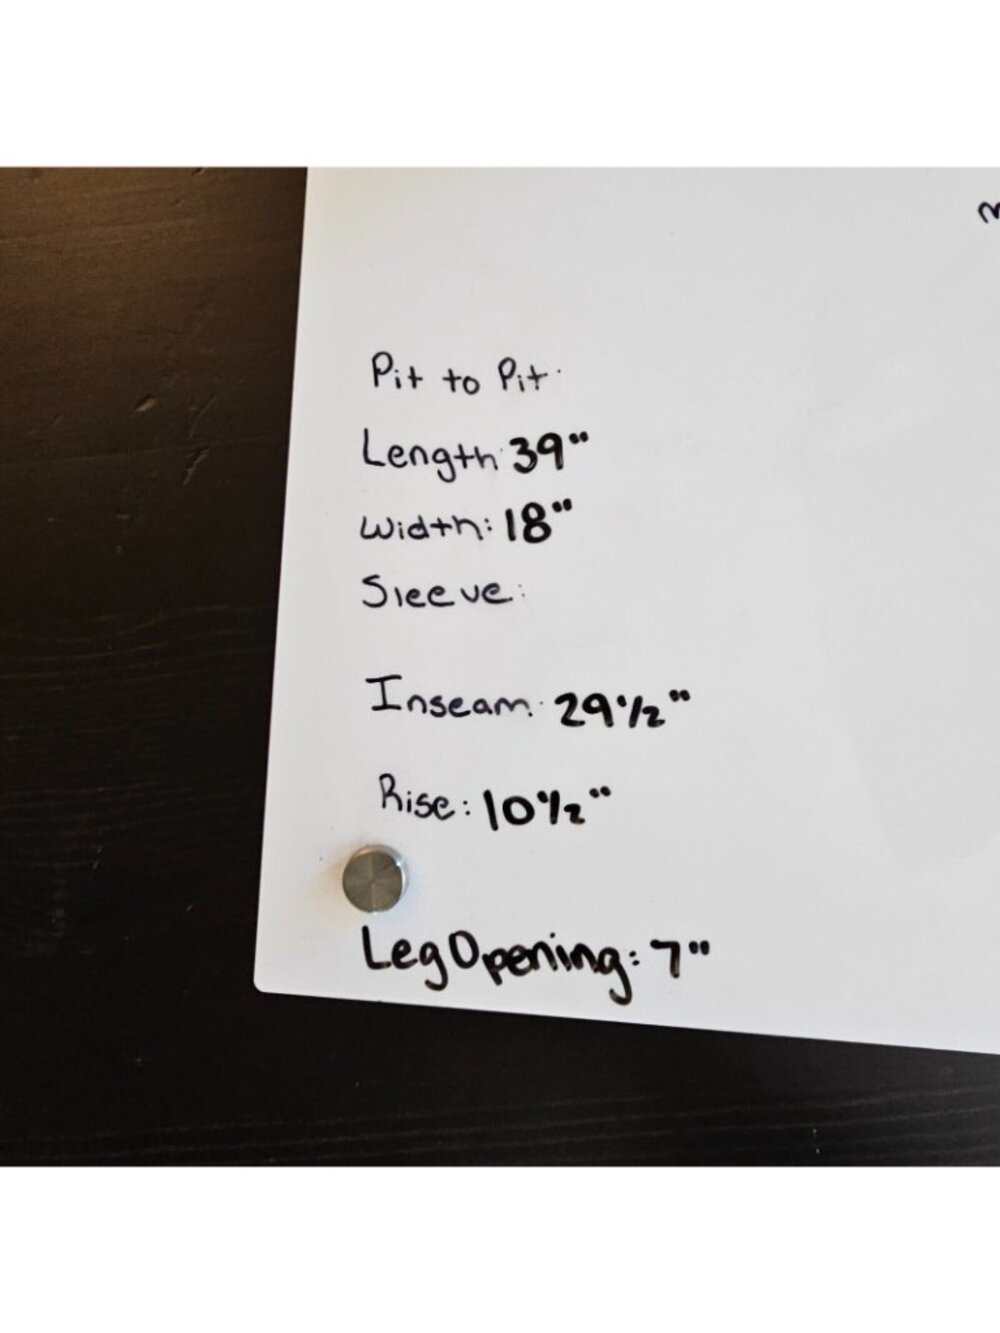 Pit to Pit:
Length: 39"
Width: 18"
Sleeve:
Inseam: 29 1/2"
Rise: 10 1/2"
Leg Opening: 7"